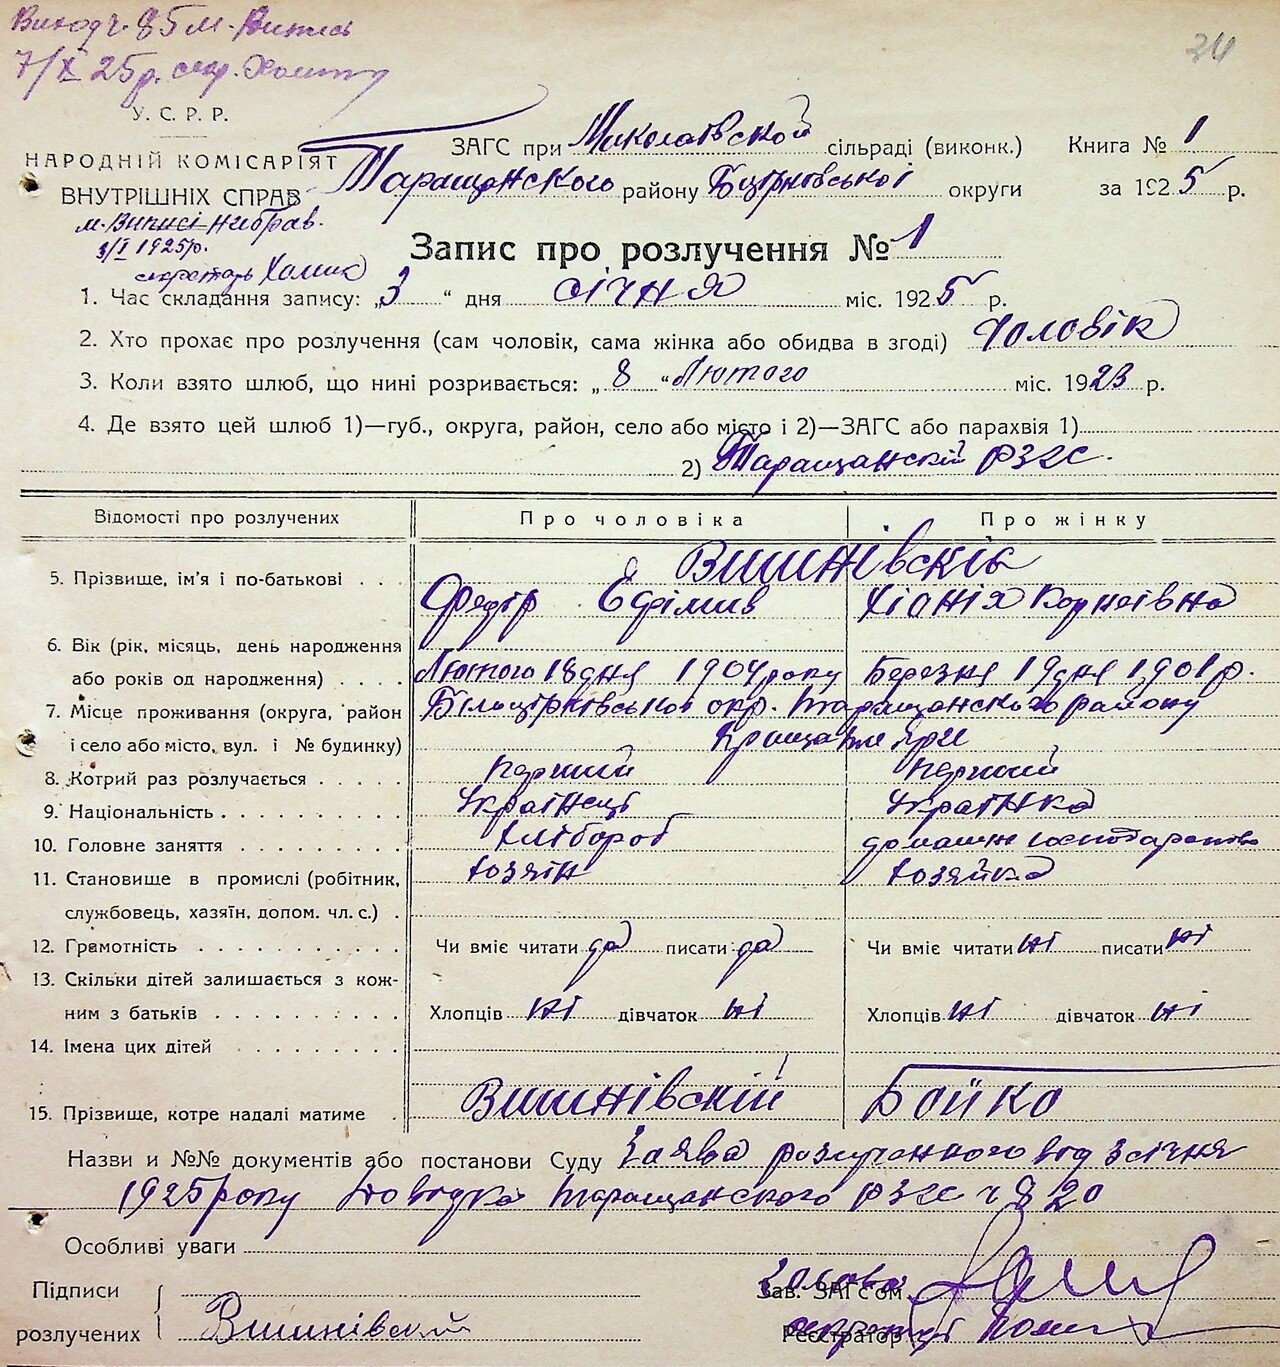 85
7/X 25 р.
34
У. С. Р. Р.
НАРОДНІЙ КОМІСАРІЯТ
ВНУТРІШНІХ СПРАВ
3/I 1925р.
секретарь
ЗАГС при Миколаївской сільраді (виконк.) Книга № 1
Таращанского району округи за 1925 р.
Запис про розлучення № 1
1. Час складання запису: „3“ дня січня міс. 1925 р.
2. Хто прохає про розлучення (сам чоловік, сама жінка або обидва в згоді) чоловік
3. Коли взято шлюб, що нині розривається: „8“ Лютого міс. 1923 р.
4. Де взято цей шлюб 1)—губ., округа, район, село або місто і 2)—ЗАГС або парахвія 1)
2) Таращанскій РЗГС.
Відомості про розлучених Про чоловіка Про жінку
Вишнівскіє
5. Прізвище, ім'я і по-батькові Федір Єфімив Хіонія Корніївна
6. Вік (рік, місяць, день народження
або років од народження) Лютого 18 дня 1904 року Березня 19 дня 1901 р.
7. Місце проживання (округа, район Білоцірківськоі окр. Таращанского району
і село або місто, вул. і № будинку)
8. Котрий раз розлучається перший перший
9. Національність Українець Українка
10. Головне заняття хлібороб домашн господарство
11. Становище в промислі (робітник, хозяін хозяйка
службовець, хазяїн, допом. чл. с.)
12. Грамотність Чи вміє читати да писати да Чи вміє читати ні писати ні
13. Скільки дітей залишається з кож-
ним з батьків Хлопців ні дівчаток ні Хлопців ні дівчаток ні
14. Імена цих дітей
15. Прізвище, котре надалі матиме Вишнівскій Бойко
Назви и №№ документів або постанови Суду Заява розлученного від 3 січня
1925 року Довідка Таращанского РЗГС ч 820
Особливі уваги
Підписи Голова Зав. ЗАГС'ом
розлучених Вишнівский секретарь Реєстратор